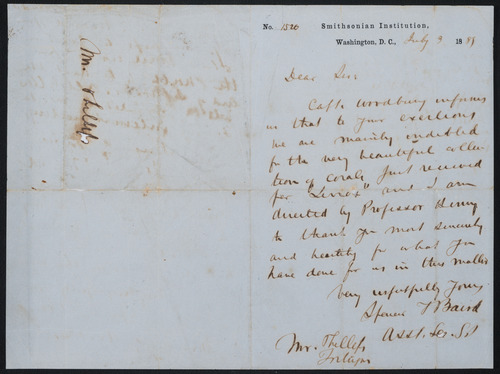 No. 1520 Smithsonian Institution,
Washington, D. C., July 9 18
Dear Sir
Capt. Woodbury informs
us that to your exertions
we are mainly indebted
for the very beautiful collec-
tion of corals just received
per "       " and I am
directed by Professor Henry
to thank you most sincerely
and heartily for what you
have done for us in this matter
Very respectfully Yours
Spencer F Baird
Asst. Sec. S.I
Mr. Phillips
Tortugas
Mr. Phillips